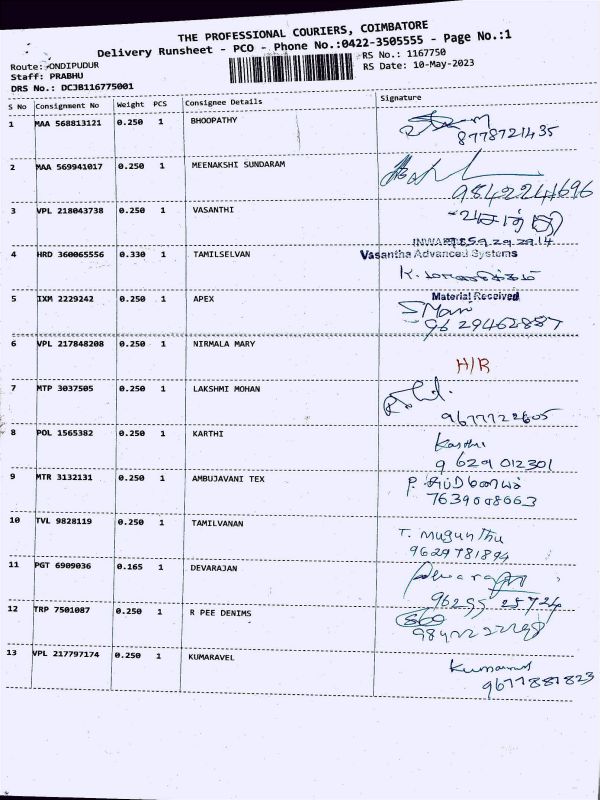 THE PROFESSIONAL COURIERS, COIMBATORE
Delivery Runsheet - PCO - Phone No.:0422-3505555 - Page No.:1
Route: ONDIPUDUR
RS No.: 1167750
Staff: PRABHU
RS Date: 10-May-2023
DRS No.: DCJB116775001
S No Consignment No Weight PCS Consignee Details Signature
1 MAA 568813121 0.250 1 BHOOPATHY
8778721435
2 MAA 569941017 0.250 1 MEENAKSHI SUNDARAM
9842241696
3 VPL 218043738 0.250 1 VASANTHI
வசந்தி
INWARD
4 HRD 360065556 0.330 1 TAMILSELVAN
Vasantha Advanced Systems
K.
5 IXM 2229242 0.250 1 APEX
Material Received
S Mani
9629462887
6 VPL 217848208 0.250 1 NIRMALA MARY
H/R
7 MTP 3037505 0.250 1 LAKSHMI MOHAN
9677722605
8 POL 1565382 0.250 1 KARTHI
Karthi
9629012301
9 MTR 3132131 0.250 1 AMBUJAVANI TEX
P.
7639008663
10 TVL 9828119 0.250 1 TAMILVANAN
T. mugunthu
9629781894
11 PGT 6909036 0.165 1 DEVARAJAN
12 TRP 7501087 0.250 1 R PEE DENIMS
13 VPL 217797174 0.250 1 KUMARAVEL
Kumaravel
9677881823